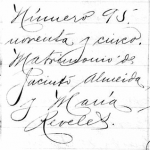 Número 95.
noventa y cinco.
Matrimonio de
Jacinto Almeida
y María
Reveles.